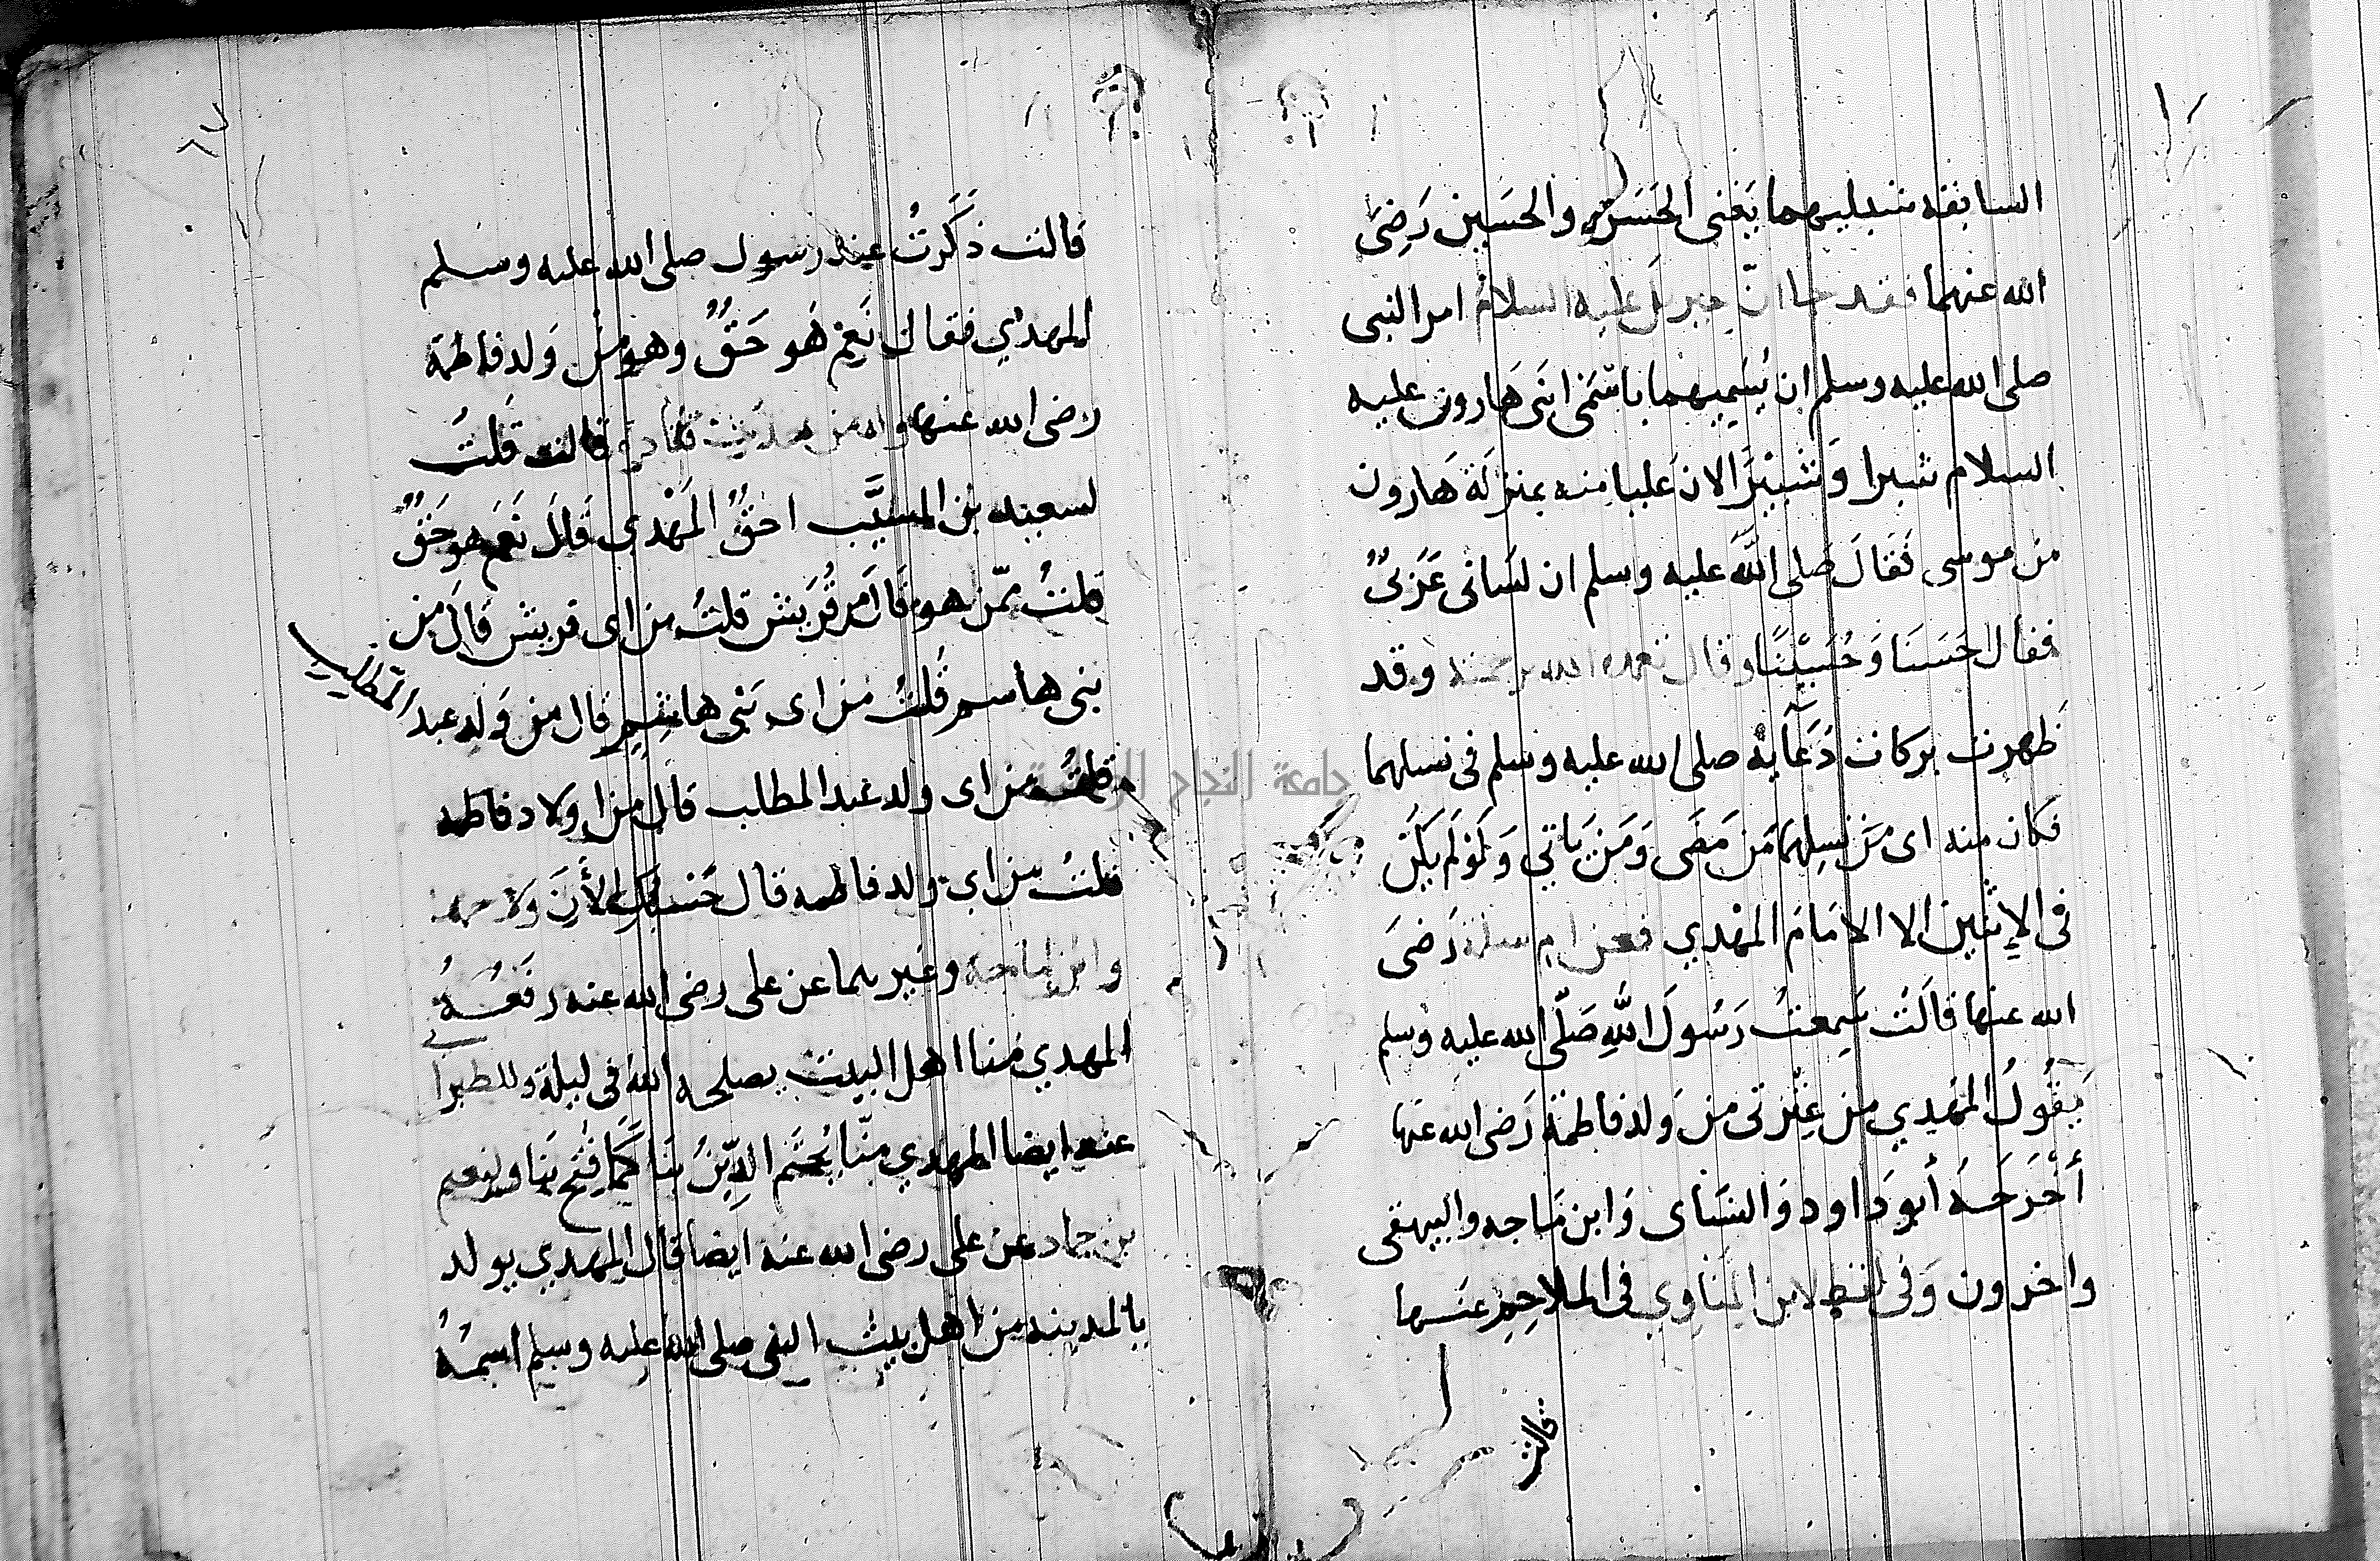 السابقه شبليهما يَعْنى الحَسَن والحسَين رَضِىَ
الله عنهما فقد جا انّ جبريل عليه السلامُ امر النبى
صلى الله عليه وسلم ان يُسَميهما باسْمَىْ ابنَى هَارون عليه
السلام شبرا وَشَبيْرًا لان عَليا منه بمنزلَة هَارون
من موسى فَقالَ صَلى اللَّه عليه وسلم ان لسَانى عَرَبىٌ
فقال حَسَنا وَحُسَيْنًا وقال نعمه الله برحمته وقد
ظَهرت بركات دُعَآيهُ صلى الله عليه وسلم فى نسلهما
فكان منه اى مَن نسلِهمَا مَن مَضَى وَمَن يَاتي وَلَوْ لَم يَكُن
فى الاِثنين الا الامَامَ المهْدي فعن ام سلمة رَضىَ
الله عنها قالَتْ سَمِعتُ رَسُولَ اللَّهِ صَلّى الله عليه وسلم
يَقُولُ المَهْدي من عِتْرتى من وَلد فاطمَةَ رَضى الله عنها
أَخْرَجَهُ أبو دَاود وَالنسَاى وَابن مَاجه والبيهقى
واخرون وَفى لفظ لابن المنَاوي فى الملاحِمِ عَنها
قالت
قالت ذَكَرتُ عند رسول صلى الله عليه وسلم
المهدي فقال نَعم هَو حَقٌ وهو من وَلد فاطمَة
رضى الله عنها وله من حديث قتادة قالت قلتُ
لسعيد بن المسيَّب احَقٌ المَهْدي قَالَ نَعَم هو حَقٌ
قلتُ ممّن هو قَالَ من قُرَيش قلتُ من اى قريش قال من
بنى هاسم قلتُ من اى بَنى هاشمٍ قال من وَلد عبد المطلب
قلتُ من اى ولد عبد المطلب قال من اولاد فاطمه
قلتُ من اي ولد فاطمه قال حَسْبك الأَن وَلاحمد
وابن ماجه وغير هما عن على رضى الله عنه رفَعَهُ
المهدي منا اهل البيت يصلحه اللهُ فى ليلة وللطبرانى
عنه ايضا المهدي منّا يُختَم الدِّينُ بنَا كَمَا فُتح بنَا ولنعيم
بن حماد عن على رضى الله عنه ايضا قال المهدي يولد
بالمدينه من اهل بيت النبى صلى الله عليه وسلم اسمُهُ
جامعة النجاح الوطنية